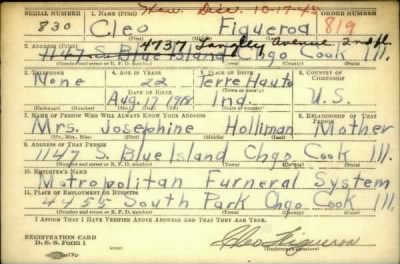 Hon. Disc. 10-17-45
SERIAL NUMBER 1. NAME (Print) ORDER NUMBER
830 Cleo Figueroa 819
(First) (Middle) (Last)
4737 Langley Avenue 2nd fl.
2. ADDRESS (Print)
1147 S. Blue Island Chgo Cook Ill.
(Number and street or R. F. D. number) (Town) (County) (State)
3. TELEPHONE 4. AGE IN YEARS 5. PLACE OF BIRTH 6. COUNTRY OF CITIZENSHIP
None 22 Terre Haute
DATE OF BIRTH (Town or county)
Aug. 17 1918 Ind. U.S.
(Exchange) (Number) (Mo.) (Day) (Yr.) (State or country)
7. NAME OF PERSON WHO WILL ALWAYS KNOW YOUR ADDRESS 8. RELATIONSHIP OF THAT PERSON
Mrs. Josephine Holliman Mother
(Mr., Mrs., Miss) (First) (Middle) (Last)
9. ADDRESS OF THAT PERSON
1147 S. Blue Island Chgo Cook Ill.
(Number and street or R. F. D. number) (Town) (County) (State)
10. EMPLOYER'S NAME
Metropolitan Furneral System
11. PLACE OF EMPLOYMENT OR BUSINESS
4455 South Park Chgo Cook Ill.
(Number and street or R. F. D. number) (Town) (County) (State)
I AFFIRM THAT I HAVE VERIFIED ABOVE ANSWERS AND THAT THEY ARE TRUE.
REGISTRATION CARD
D. S. S. Form 1
Cleo Figueroa
(Registrant's signature)